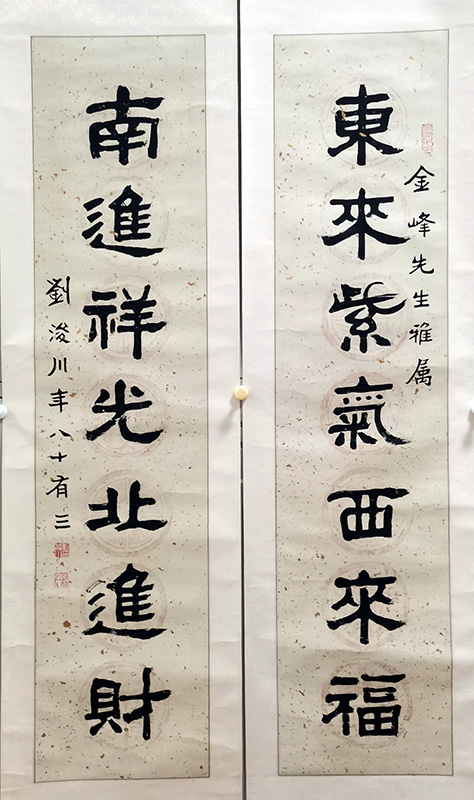 金峰先生雅属
東來紫氣西來福
南進祥光北進財
劉浚川年八十有三